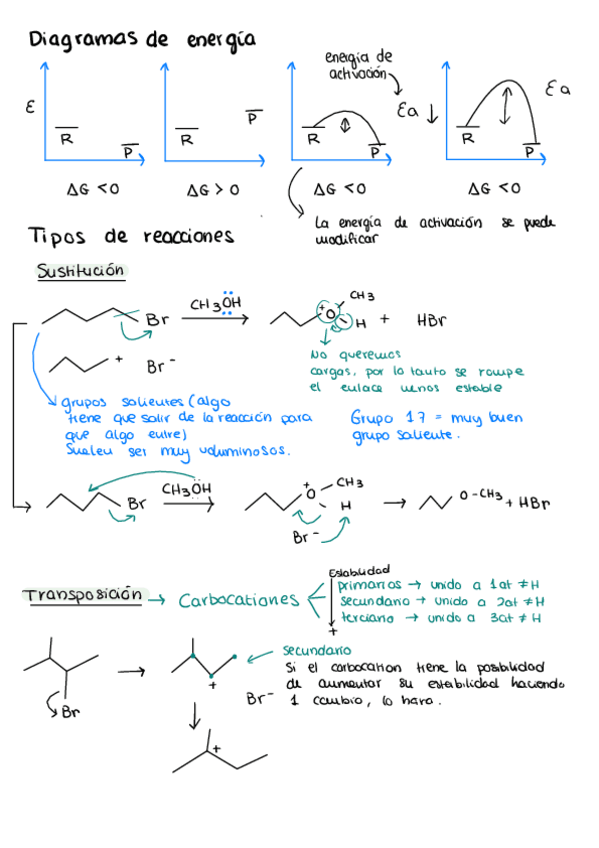 Diagramas de energía
energía de
activación
ε
R
P
R
P
R
P
Ea ↓
R
P
Ea
ΔG < 0
ΔG > 0
ΔG < 0
ΔG < 0
La energía de activación se puede
modificar
Tipos de reacciones
Sustitución
Br
CH3ÖH
+
O
CH3
H
+ HBr
+
Br⁻
No queremos
cargas, por lo tanto se rompe
el enlace menos estable
grupos salientes (algo
tiene que salir de la reacción para
que algo entre)
Suelen ser muy voluminosos.
Grupo 17 = muy buen
grupo saliente.
Br
CH3ÖH
+
O
CH3
H
Br⁻
O-CH3 + HBr
Transposición → Carbocationes
Estabilidad
primarios → unido a 1at ≠ H
secundario → unido a 2at ≠ H
terciario → unido a 3at ≠ H
+
Br
+
Br⁻
secundario
Si el carbocation tiene la posibilidad
de aumentar su estabilidad haciendo
1 cambio, lo hara.
+